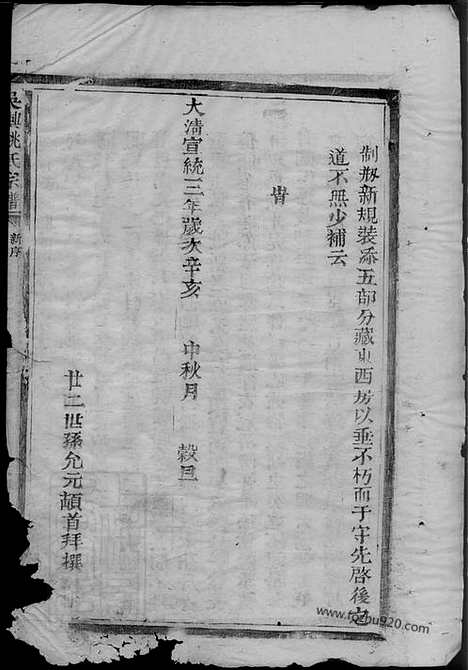 制叛新規裝添五部分藏東西房以垂不朽而于守先啓後之
道不無少補云
旹
大清宣統三年歲次辛亥 中秋月 穀旦
廿二世孫允元頓首拜撰
吳興姚氏宗譜 新序
www.tozhu920.com